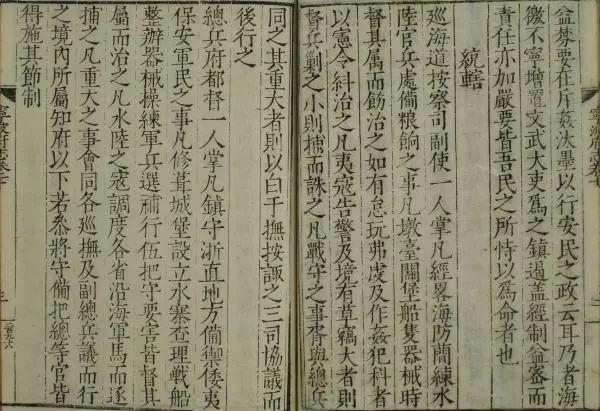 益焚要在斥姦汰墨以行安民之政云耳乃者海
徼不寧增置文武大吏爲之鎮遏蓋經制益密而
責任亦加嚴要皆吾民之所恃以爲命者也
統轄
巡海道按察司副使一人掌凡經畧海防蕳練水
陸官兵處備粮餉之事凡墩臺關堡船隻器械時
督其属而飭治之如有怠玩弗虔及作姦犯科者
以憲令糾治之凡夷寇告警及境有草竊大者則
督兵剿之小則捕而誅之凡戰守之事胥與總兵
同之其重大者則以白于撫按諏之三司協議而
後行之
總兵府都督一人掌凡鎮守浙直地方備禦倭夷
保安軍民之事凡修葺城堡設立水寨查理戰船
整辦器械操練軍兵選補行伍把守要害皆督其
屬而治之凡水陸之寇調度各省沿海軍馬而逐
捕之凡重大之事會同各巡撫及副總兵議而行
之境內所屬知府以下若叅將守備把總等官皆
得施其節制
寧波府志卷七
三